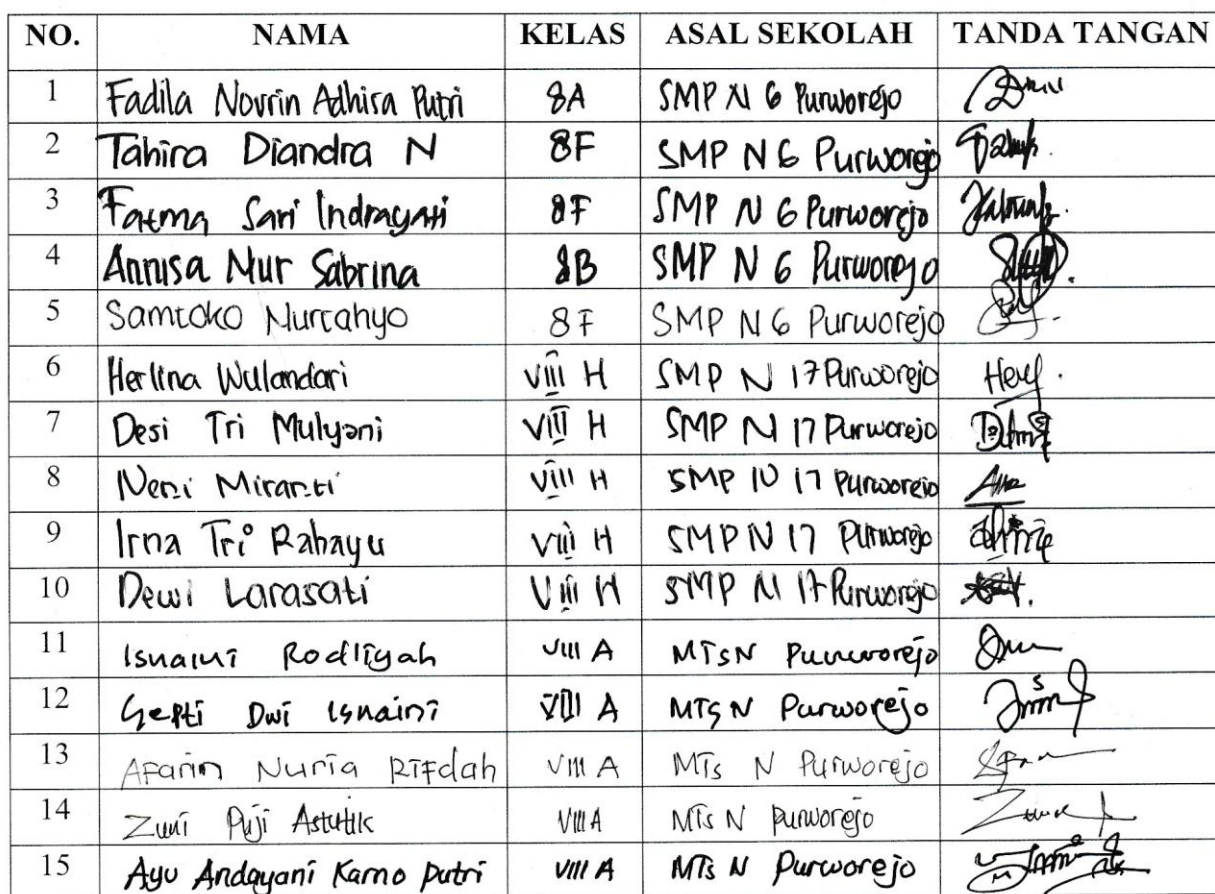 NO. NAMA KELAS ASAL SEKOLAH TANDA TANGAN
1 Fadila Novrin Adhira Putri 8A SMP N 6 Purworejo
2 Tahira Diandra N 8F SMP N 6 Purworejo
3 Fatma Sari Indrayati 8F SMP N 6 Purworejo
4 Annisa Nur Sabrina 8B SMP N 6 Purworejo
5 Samtoko Nurcahyo 8F SMP N 6 Purworejo
6 Herlina Wulandari VIII H SMP N 17 Purworejo
7 Desi Tri Mulyani VIII H SMP N 17 Purworejo
8 Neni Miranti VIII H SMP N 17 Purworejo
9 Irna Tri Rahayu VIII H SMP N 17 Purworejo
10 Dewi Larasati VIII H SMP N 17 Purworejo
11 Isnaini Rodliyah VIII A MTsN Purworejo
12 Septi Dwi Isnaini VIII A MTs N Purworejo
13 Afarin Nuria Rifdah VIII A MTs N Purworejo
14 Zuni Puji Astutik VIII A MTs N Purworejo
15 Ayu Andayani Karno Putri VIII A MTs N Purworejo